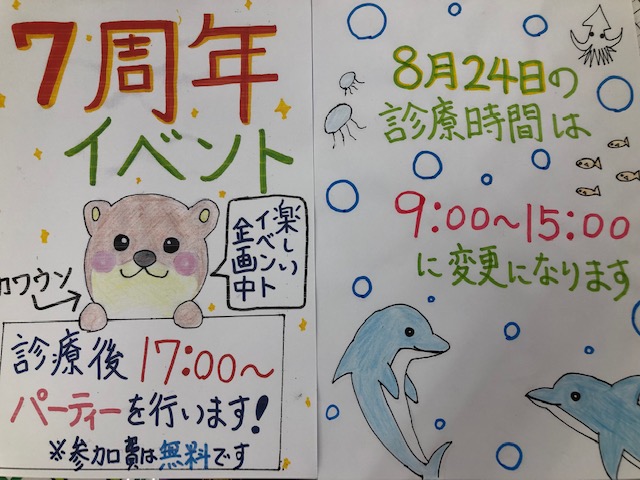 7周年
イベント
楽しい
イベント
企画中
カワウソ
診療後 17:00～
パーティーを行います!
※参加費は無料です
8月24日の
診療時間は
9:00～15:00
に変更になります